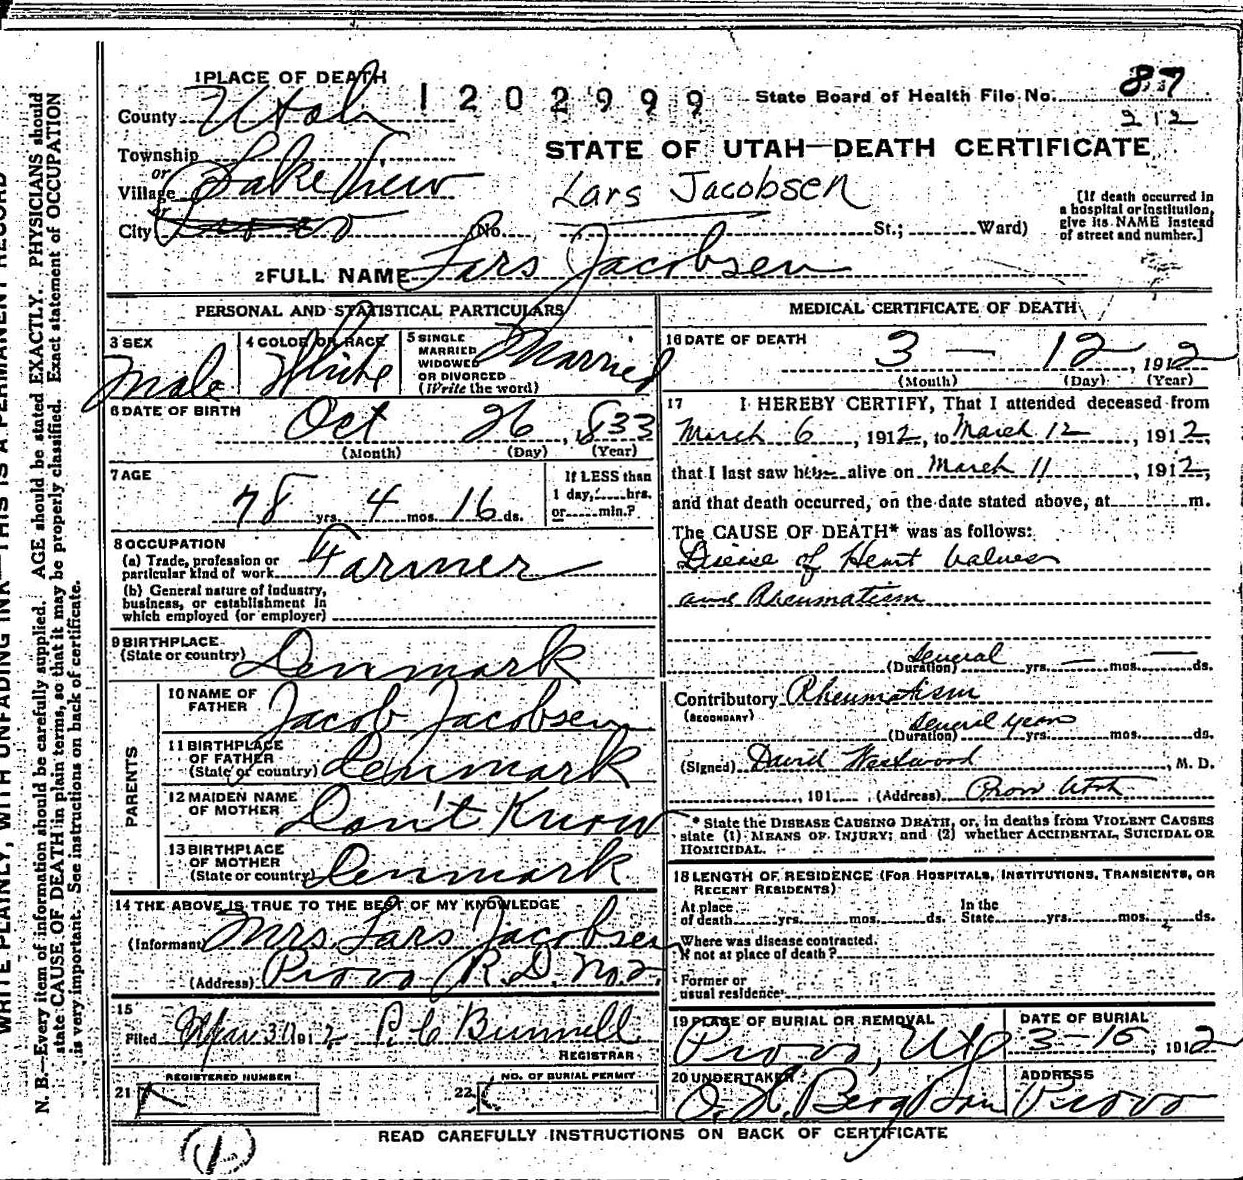 1 PLACE OF DEATH
1202999
State Board of Health File No. 87
212
County Utah
Township
or
Village Lake View
or
City Provo (No. St.; Ward)
STATE OF UTAH—DEATH CERTIFICATE
Lars Jacobsen
[If death occurred in
a hospital or institution,
give its NAME instead
of street and number.]
2 FULL NAME Lars Jacobsen
PERSONAL AND STATISTICAL PARTICULARS
3 SEX
Male
4 COLOR OR RACE
White
5 SINGLE
MARRIED
WIDOWED
OR DIVORCED
(Write the word)
Married
6 DATE OF BIRTH
Oct 26, 833
(Month) (Day) (Year)
7 AGE
78 yrs. 4 mos. 16 ds.
If LESS than
1 day, hrs.
or min.?
8 OCCUPATION
(a) Trade, profession or
particular kind of work Farmer
(b) General nature of industry,
business, or establishment in
which employed (or employer)
9 BIRTHPLACE
(State or country) Denmark
PARENTS
10 NAME OF
FATHER Jacob Jacobsen
11 BIRTHPLACE
OF FATHER
(State or country) Denmark
12 MAIDEN NAME
OF MOTHER Don't Know
13 BIRTHPLACE
OF MOTHER
(State or country) Denmark
14 THE ABOVE IS TRUE TO THE BEST OF MY KNOWLEDGE
(Informant Mrs Lars Jacobsen
(Address) Provo R.D. No. 2
15
Filed Mar 30 1912 P. C Bunnell
REGISTRAR
REGISTERED NUMBER
21
NO. OF BURIAL PERMIT
22
MEDICAL CERTIFICATE OF DEATH
16 DATE OF DEATH
3 — 12, 1912
(Month) (Day) (Year)
17 I HEREBY CERTIFY, That I attended deceased from
March 6, 1912, to March 12, 1912,
that I last saw him alive on March 11, 1912,
and that death occurred, on the date stated above, at m.
The CAUSE OF DEATH* was as follows:
Disease of Heart Valves
and Rheumatism
(Duration) Several yrs. — mos. — ds.
Contributory Rheumatism
(SECONDARY)
(Duration) Several years yrs. mos. ds.
(Signed) David Westwood, M. D.
, 191 (Address) Provo Utah
* State the DISEASE CAUSING DEATH, or, in deaths from VIOLENT CAUSES
state (1) MEANS OF INJURY; and (2) whether ACCIDENTAL, SUICIDAL OR
HOMICIDAL.
18 LENGTH OF RESIDENCE (FOR HOSPITALS, INSTITUTIONS, TRANSIENTS, OR
RECENT RESIDENTS)
At place
of death yrs. mos. ds.
In the
State yrs. mos. ds.
Where was disease contracted.
If not at place of death?
Former or
usual residence
19 PLACE OF BURIAL OR REMOVAL
Provo, Utah
DATE OF BURIAL
3-15, 1912
20 UNDERTAKER
O. H. Berg & Son
ADDRESS
Provo
READ CAREFULLY INSTRUCTIONS ON BACK OF CERTIFICATE
WRITE PLAINLY, WITH UNFADING INK—THIS IS A PERMANENT RECORD
N. B.—Every item of information should be carefully supplied. AGE should be stated EXACTLY. PHYSICIANS should
state CAUSE OF DEATH in plain terms, so that it may be properly classified. Exact statement of OCCUPATION
is very important. See instructions on back of certificate.